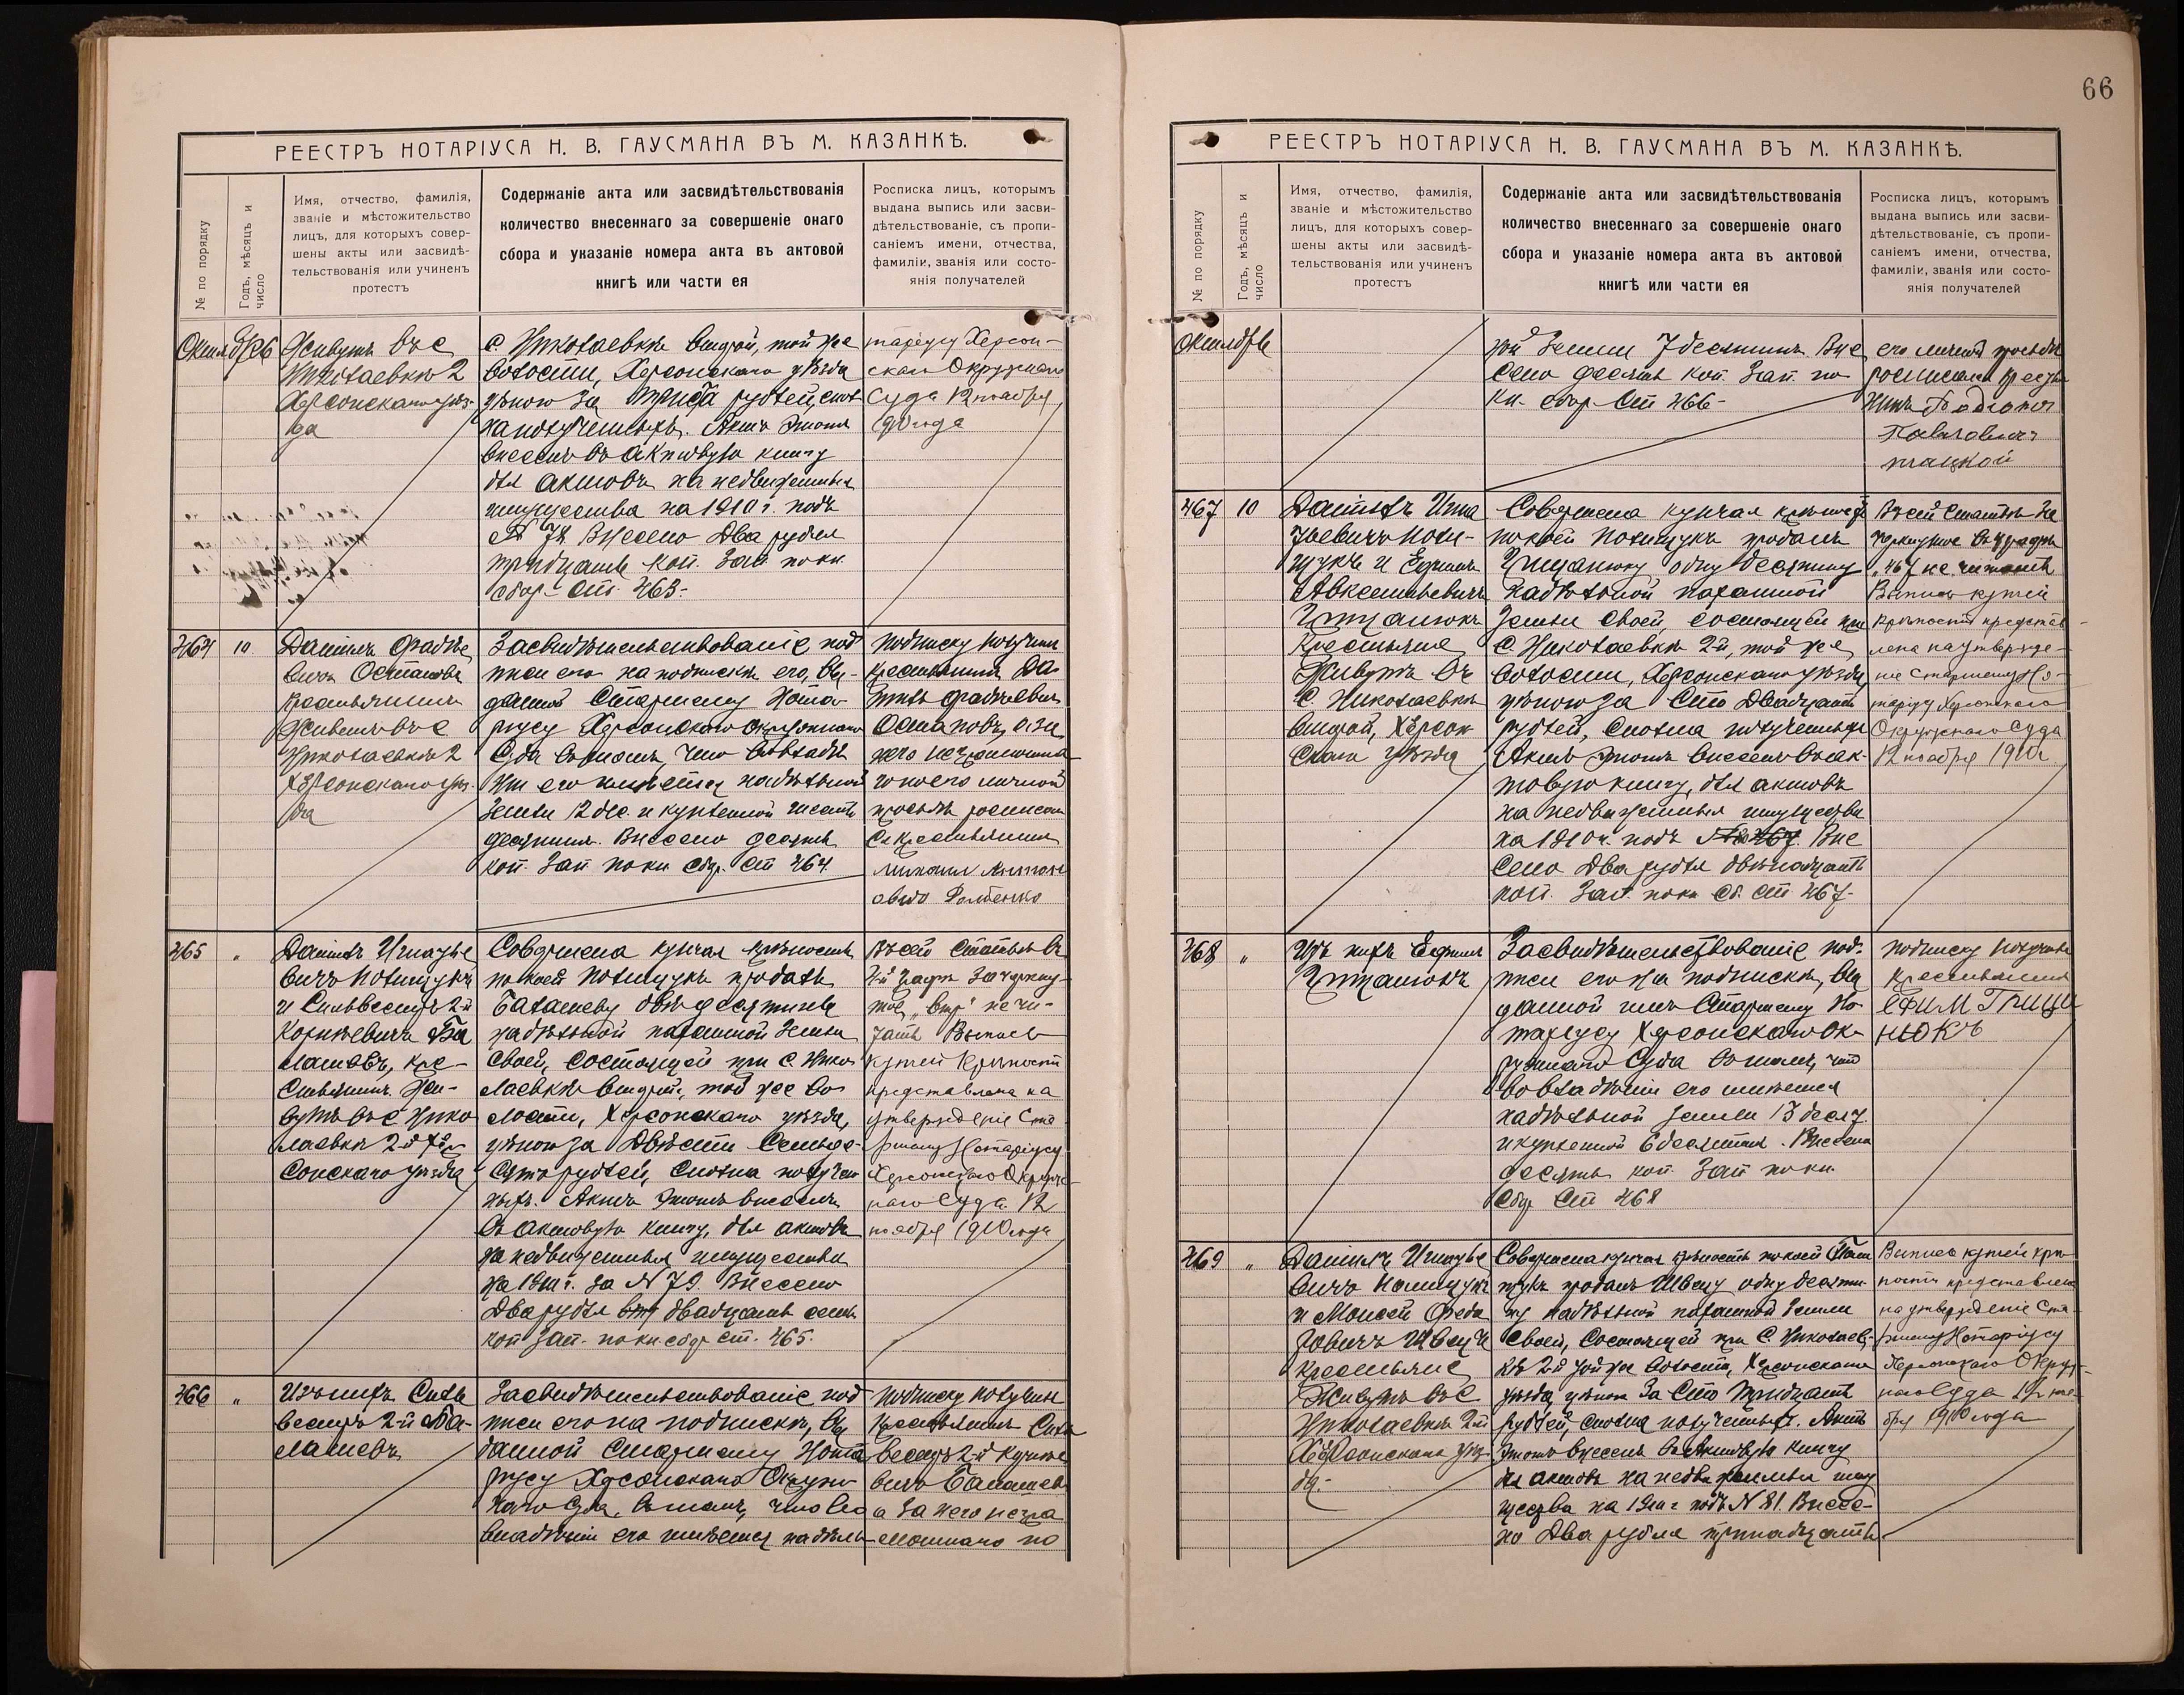 66
РЕЕСТРЪ НОТАРІУСА Н. В. ГАУСМАНА ВЪ М. КАЗАНКѢ.
№ по порядку
Годъ, мѣсяцъ и
число
Имя, отчество, фамилія,
званіе и мѣстожительство
лицъ, для которыхъ совер-
шены акты или засвидѣ-
тельствованія или учиненъ
протестъ
Содержаніе акта или засвидѣтельствованія
количество внесеннаго за совершеніе онаго
сбора и указаніе номера акта въ актовой
книгѣ или части ея
Росписка лицъ, которымъ
выдана выпись или засви-
дѣтельствованіе, съ пропи-
саніемъ имени, отчества,
фамиліи, званія или состо-
янія получателей
Октября
Живутъ въ с
Николаевкѣ 2
Херсонскаго уѣз-
да
с. Николаевкѣ второй, той же
волости, Херсонскаго уѣзда
цѣною за рублей, спол
на полученныхъ. Актъ этотъ
внесенъ въ актовую книгу
для актовъ на недвижимыя
имущества на 1910 г. подъ
№ 78 Внесено Два рубля
тридцать коп. Зап. по кн.
сбор. Ст. 463.
таріусу Херсон-
скаго Окружнаго
Суда 12 ноября
1910 года
464
10
Даніилъ
вичъ Остаповъ
крестьянинъ
Живетъ въ с
Николаевкѣ 2
Херсонскаго уѣз-
да
Засвидѣтельствованіе под
писи его на подпискѣ его, вы-
данной Старшему Нота-
ріусу Херсонскаго Окружнаго
Суда въ томъ, что во владѣ
ніи его имѣется надѣльной
земли 12 дес. и купленной шесть
десятинъ. Внесено десять
коп. Зап. по кн. сбор. ст 464.
Подписку получилъ
крестьянинъ Да-
нилъ
Остаповъ, а за
него неграмотна-
го по его личной
просьбѣ росписал
ся крестьянинъ
465
"
Даніилъ Игнатье
вичъ Полищукъ
и Сильвестръ 2-й
Корнѣевичъ Ба
лашевъ, кре-
стьянинъ Жи-
вутъ въ с Нико
лаевкѣ 2-й Хер
сонскаго уѣзда
Совершена купчая крѣпость
по коей Полищукъ продалъ
Балашеву двѣ десятины
надѣльной пахатной земли
своей, состоящей при с. Нико-
лаевкѣ второй, той же во-
лости, Херсонскаго уѣзда,
цѣною за Двѣсти Семьде-
сятъ рублей, сполна получен
ныхъ. Актъ этотъ внесенъ
въ актовую книгу, для актовъ
на недвижимыя имущества
на 1910 г. за № 79. Внесено
Два рубля двадцать семь
коп Зап. по кн сбор ст. 465.
Въ сей статьѣ въ
2-й графѣ зачеркну-
тое не чи-
тать Выпись
купчей крѣпости
представлена на
утвержденіе Ста
ршему Нотаріусу
Херсонскаго Окруж-
наго Суда 12
ноября 1910 года
466
"
Изъ нихъ Силь
вестръ 2-й Ба-
лашевъ
Засвидѣтельствованіе под
писи его на подпискѣ, вы
данной Старшему Нота
ріусу Херсонскаго Окруж-
наго Суда, въ томъ, что во
владѣніи его имѣется надѣль-
Подписку получилъ
крестьянинъ Силь
вестръ 2-й Корнѣе
вичъ Балашевъ
а за него негра
мотнаго по
РЕЕСТРЪ НОТАРІУСА Н. В. ГАУСМАНА ВЪ М. КАЗАНКѢ.
№ по порядку
Годъ, мѣсяцъ и
число
Имя, отчество, фамилія,
званіе и мѣстожительство
лицъ, для которыхъ совер-
шены акты или засвидѣ-
тельствованія или учиненъ
протестъ
Содержаніе акта или засвидѣтельствованія
количество внесеннаго за совершеніе онаго
сбора и указаніе номера акта въ актовой
книгѣ или части ея
Росписка лицъ, которымъ
выдана выпись или засви-
дѣтельствованіе, съ пропи-
саніемъ имени, отчества,
фамиліи, званія или состо-
янія получателей
Октября
ной земли 7 десятинъ Вне
сено десять коп. Зап. по
кн. сбор Ст 466-
его личной просьбѣ
росписался крестья
нинъ
Павловичъ
467
10
Даніилъ Игна
тьевичъ Поли-
щукъ и Ефимъ
Авксентьевичъ
Грицанюкъ
Крестьяне
Живутъ въ
с. Николаевкѣ
второй, Херсон
скаго уѣзда
Совершена купчая крѣпость
по коей Полищукъ продалъ
Грицанюку одну десятину
надѣльной пахатной
земли своей, состоящей при
с. Николаевкѣ 2-й, той же
волости, Херсонскаго уѣзда,
цѣною за Сто Двадцать
рублей, сполна полученныхъ
Актъ этотъ внесенъ въ ак-
товую книгу, для актовъ
на недвижимыя имущества
на 1910 г. подъ Вне
сено Два рубля двѣнадцать
коп. Зап. по кн Сб. ст 467-
Въ сей статьѣ за
черкнутое въ графѣ
не читать
Выпись купчей
крѣпости представ-
лена на утвержде-
ніе Старшему Но-
таріусу Херсонскаго
Окружнаго Суда
12 ноября 1910 г
468
"
Изъ нихъ Ефимъ
Грицанюкъ
Засвидѣтельствованіе под-
писи его на подпискѣ, вы
данной имъ Старшему Но-
таріусу Херсонскаго Ок-
ружнаго Суда въ томъ, что
во владѣніи его имѣется
надѣльной земли 13 десят.
и купленной 6 десятинъ. Внесена
десять коп. Зап по кн.
Сбор Ст 468
Подписку получилъ
крестьянинъ
ЕФИМ ГРИЦА
НЮКЪ
469
"
Даніилъ Игнатье
вичъ Полищукъ
и Моисей Федо
ровичъ Швецъ
крестьяне
Живутъ въ с
Николаевкѣ 2-й
Херсонскаго уѣз-
да.-
Совершена купчая крѣпость по коей Поли
щукъ продалъ Швецу одну десяти-
ну надѣльной пахатной земли
своей, состоящей при с. Николаев-
кѣ 2-й той же волости, Херсонскаго
уѣзда, цѣною за Сто Тридцать
рублей, сполна полученныхъ. Актъ
этотъ внесенъ въ актовую книгу
для актовъ на недвижимыя иму
щества на 1910 г подъ № 81. Внесе-
но Два рубля тринадцать
Выпись купчей крѣ-
пости представлена
на утвержденіе Ста-
ршему Нотаріусу
Херсонскаго Окруж-
наго Суда 12 ноя-
бря 1910 года